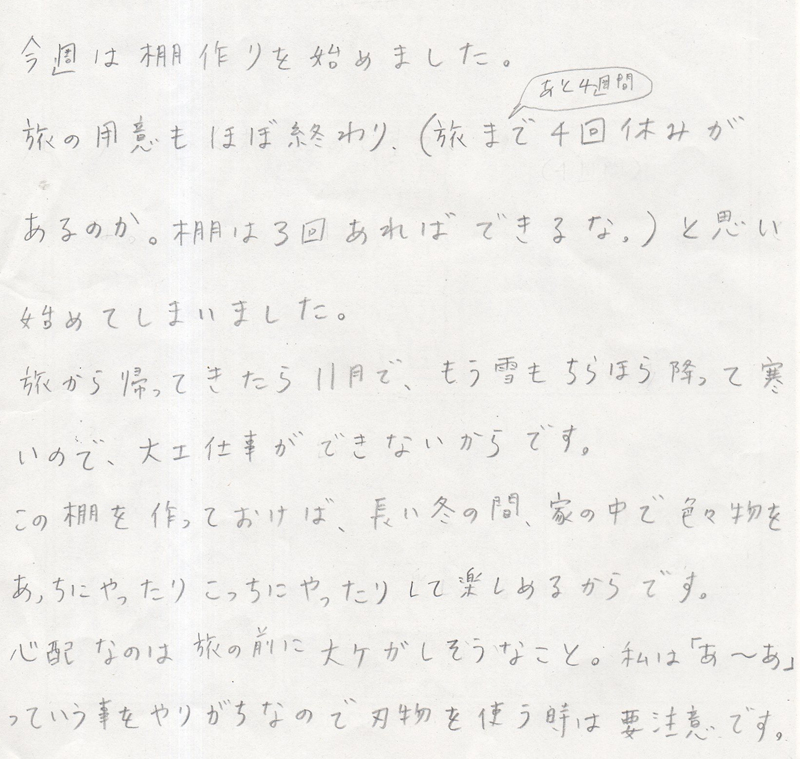 今週は棚作りを始めました。
あと4週間
旅の用意もほぼ終わり、(旅まで4回休みが
あるのか。棚は3回あればできるな。)と思い
始めてしまいました。
旅から帰ってきたら11月で、もう雪もちらほら降って寒
いので、大工仕事ができないからです。
この棚を作っておけば、長い冬の間、家の中で色々物を
あっちにやったりこっちにやったりして楽しめるからです。
心配なのは旅の前に大ケガしそうなこと。私は「あ〜あ」
っていう事をやりがちなので刃物を使う時は要注意です。